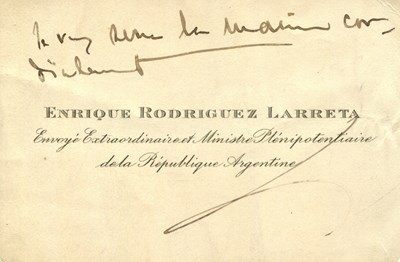 Je vous serre la main cor-
dialement
ENRIQUE RODRIGUEZ LARRETA
Envoyé Extraordinaire et Ministre Plénipotentiaire
de la République Argentine